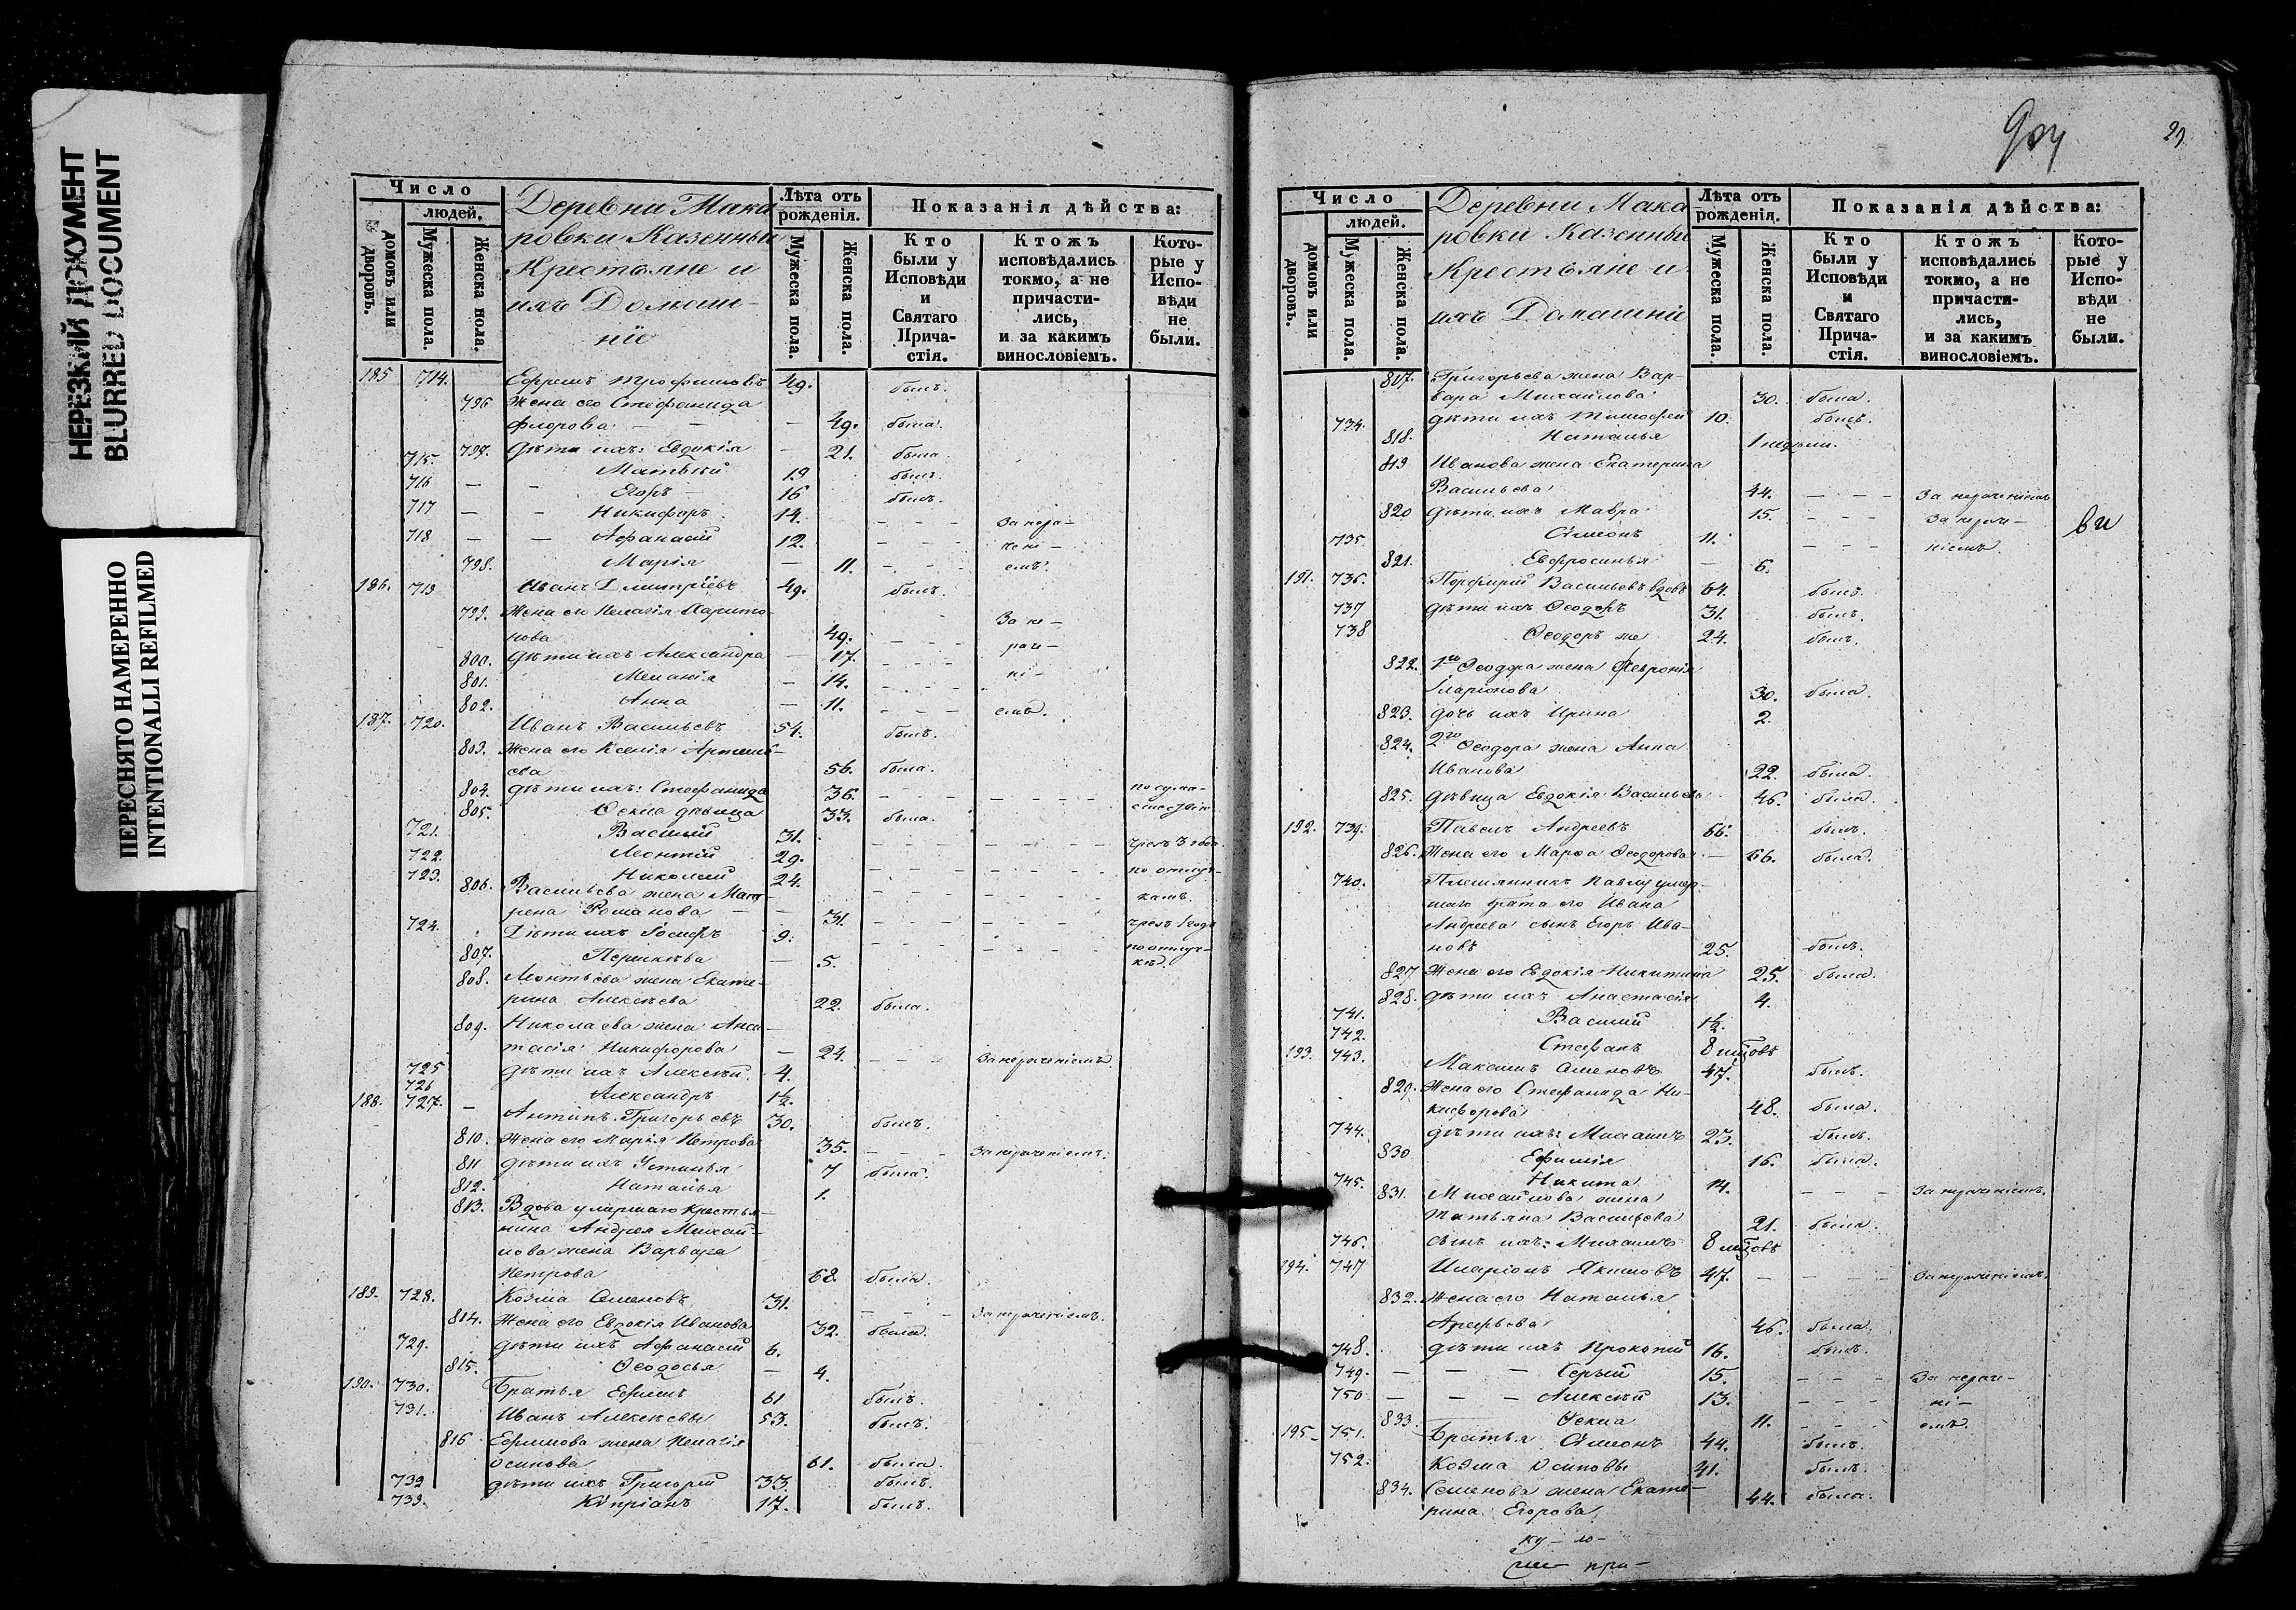 НЕРЕЗКИЙ ДОКУМЕНТ
BLURRED DOCUMENT
ПЕРЕСНЯТО НАМЕРЕННО
INTENTIONALLI REFILMED
Число
людей.
домовъ или дворовъ.
Мужеска пола.
Женска пола.
Деревни Мака
ровки Казенныи
Крестьяне и
ихъ Домаш-
ніе
Лѣта отъ рожденія.
Мужеска пола.
Женска пола.
Показанія дѣйства:
Кто были у Исповѣди и Святаго Прича-стія.
Ктожъ исповѣдались токмо, а не причасти-лись, и за какимъ винословіемъ.
Кото-рые у Испо-вѣди не были.
185 714. Ефремъ Трофимовъ 49. былъ.
796 Жена его Стефанида
Флорова — — — 49. была.
797. Дѣти ихъ: Евдокія — 21. была
715. Матвѣй 19 былъ.
716 — — Егоръ — 16 былъ.
717 — — Никифоръ 14. - - - - За нера-
718 — — Афанасій 12. - - - чені-
798. Марія — 11. - - - емъ.
186. 719 Иванъ Димитріевъ 49. былъ.
799. Жена его Пелагія Харито- За не-
нова 49. - - - раче-
800. Дѣти ихъ Александра — 17. - - -
801. Меланія — 14. - - - ні-
802. Анна — 11. - - - емъ.
187. 720. Иванъ Васильевъ 54. былъ.
803. Жена его Ксенія Артемь-
ева 56. была.
804. дѣти ихъ: Стефанида 36. - - - - - - по сума-
805. Ѳекла дѣвица 33. была.
721. Василій 31. - - - - - -
722. Леонтій 29. - - - - - - по отлуч-
723. Николай 24. - - - - - - камъ.
806. Васильева жена Мат-
рена Романова — — 31. - - - - - -
724. Дѣти ихъ Іосифъ 9. - - - - - - по отлуч-
807. — 5. кѣ.
808. Леонтьева жена Екате-
рина Алексѣева 22. была.
809. Николаева жена Анас-
тасія Никифорова — 24. - - - За нераченіемъ
725 дѣти ихъ Алексѣй. 4.
726 Александръ 1½.
188. 727. — Антипъ Григорьевъ 30. былъ.
810. Жена его Марья Петрова 35. - - - За нераченіемъ.
811 дѣти ихъ Устинья 7 была.
812. Наталья 1.
813. Вдова умершаго крестья-
нина Андрея Михай-
лова жена Варвара
Петрова 62. была.
189. 728. Козма Семеновъ 31. - - - За нераченіемъ.
814. Жена его Евдокія Иванова 32. была.
729. дѣти ихъ Афанасій 6.
815. Ѳеодосья — 4.
190. 730. Братья Ефимъ 61 былъ.
731. Иванъ Алексѣевы 53. былъ.
816 Ефимова жена Пелагія
Осипова 61. была.
732 дѣти ихъ Григорій 33. былъ.
733. Кипріанъ 17. былъ.
29
Число
людей.
домовъ или дворовъ.
Мужеска пола.
Женска пола.
Деревни Мака
ровки Казенныи
Крестьяне и
ихъ Домашніи
Лѣта отъ рожденія.
Мужеска пола.
Женска пола.
Показанія дѣйства:
Кто были у Исповѣди и Святаго Прича-стія.
Ктожъ исповѣдались токмо, а не причасти-лись, и за какимъ винословіемъ.
Кото-рые у Испо-вѣди не были.
817. Григорьева жена Вар-
вара Михайлова 30. была.
734. дѣти ихъ Тимофей 10. былъ.
818. Наталья 1 недѣли.
819 Иванова жена Екатерина
Васильева 44. — - - За нераченіемъ
820 дѣти ихъ Мавра 15. - - - За нераче-
ви
735. Сѵмеонъ 11. - - - ніемъ.
821. Евфросинья — 6.
191. 736. Порфирій Васильевъ вдовъ 64. былъ.
737 дѣти ихъ Ѳеодоръ 31. былъ.
738 Ѳеодоръ же 24. былъ.
822. 1го Ѳеодора жена Февронія
Иларіонова 30. была.
823. дочь ихъ Ирина 2.
824. 2го Ѳеодора жена Анна
Иванова 22. была.
825. дѣвица Евдокія Васильева 46. была.
192. 739. Павелъ Андреевъ 66. былъ.
826. Жена его Марѳа Ѳеодорова — 66. была.
740. Племянникъ Павлу умер-
шаго брата его Ивана
Андреева сынъ Егоръ Ива-
новъ 25. былъ.
827 Жена его Евдокія Никитина 25. была.
828. дѣти ихъ Анастасія 4.
741. Василій 1½.
742. Стефанъ 8 мцовъ
193. 743. Максимъ Семеновъ 47. былъ.
829. Жена его Стефанида Ни-
кифорова 48. была.
744. дѣти ихъ: Михаилъ 23. былъ.
830 Ефимія 16. была.
745. Никита 14. - - - За нераченіемъ.
831. Михайлова жена
Татьяна Васильева 21. была.
746. сынъ ихъ: Михаилъ 8 мцовъ
194. 747 Иларіонъ Якимовъ 47. — - - За нераченіемъ.
832. Жена его Наталья
Арефьева 46. была.
748. дѣти ихъ Прокопій 16. былъ.
749. — — — Сергѣй 15. - - - За нераче-
750 — — — Алексѣй 13. - - - ні-
833. Ѳекла 11. - - - емъ.
195. 751. Братья Сѵмеонъ 44. былъ.
752. Козма Осиповы 41. былъ.
834. Семенова жена Екате- 44. была.
рина Егорова